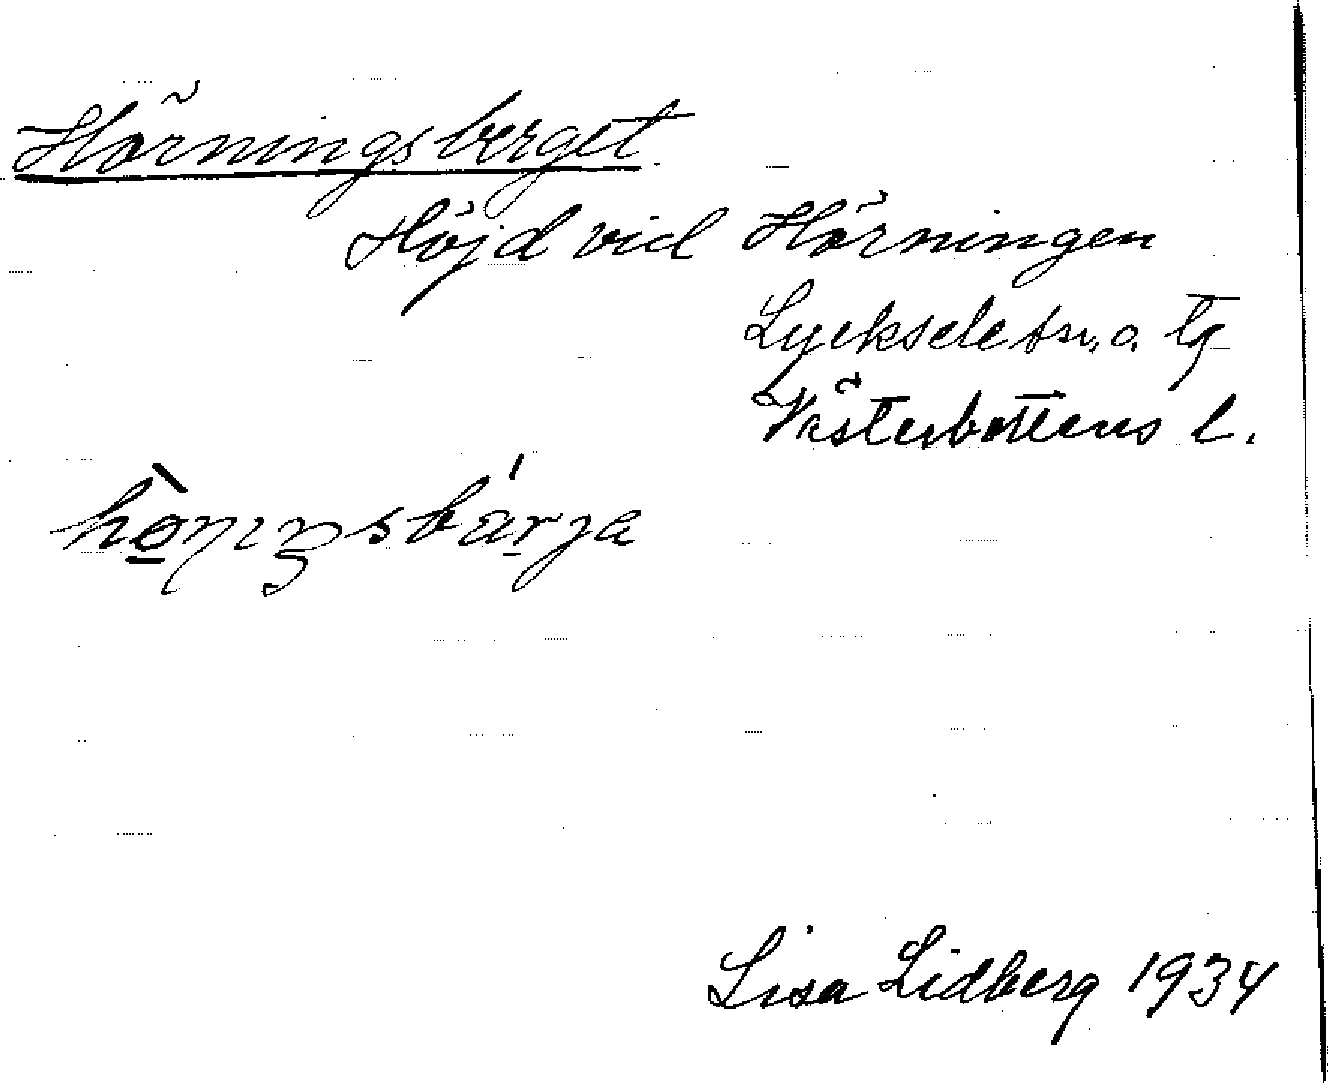 Hörningsberget
Höjd vid Hörningen
Lycksele sn, o. tg
Västerbottens l.
Lisa Lidberg 1934